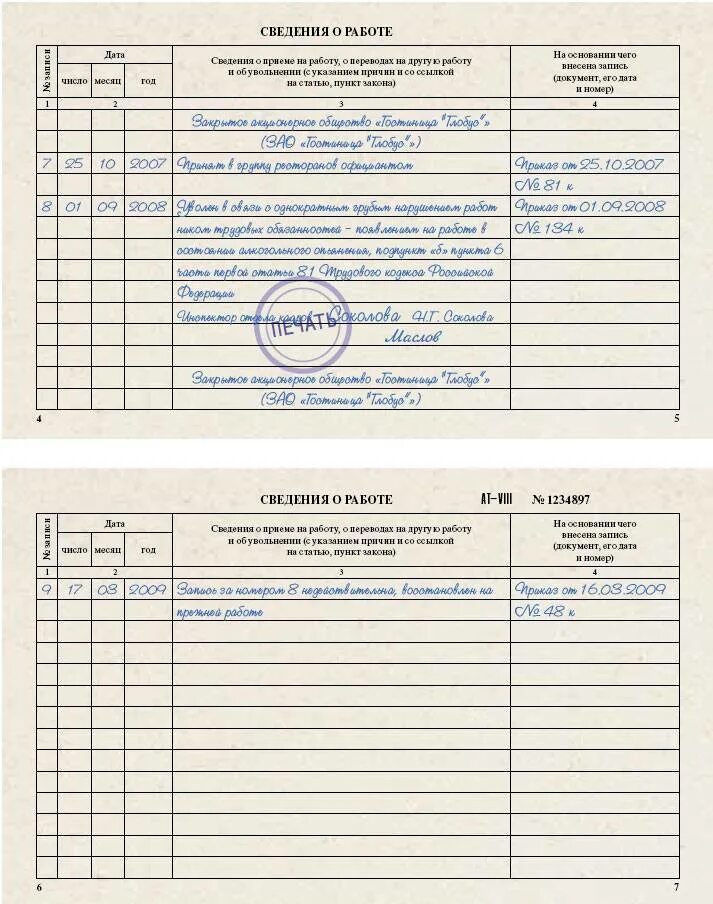 СВЕДЕНИЯ О РАБОТЕ
№ записи
Дата
Сведения о приеме на работу, о переводах на другую работу
и об увольнении (с указанием причин и со ссылкой
на статью, пункт закона)
На основании чего
внесена запись
(документ, его дата
и номер)
число месяц год
1 2 3 4
Закрытое акционерное общество «Гостиница "Глобус"»
(ЗАО «Гостиница "Глобус"»)
7 25 10 2007 Принят в группу ресторанов официантом Приказ от 25.10.2007
№ 81 к
8 01 09 2008 Уволен в связи с однократным грубым нарушением работ Приказ от 01.09.2008
ником трудовых обязанностей – появлением на работе в № 134 к
состоянии алкогольного опьянения, подпункт «б» пункта 6
части первой статьи 81 Трудового кодекса Российской
Федерации
Инспектор отдела кадров Соколова Н.Г. Соколова
ПЕЧАТЬ
Маслов
Закрытое акционерное общество «Гостиница "Глобус"»
(ЗАО «Гостиница "Глобус"»)
4 5
СВЕДЕНИЯ О РАБОТЕ AT-VIII № 1234897
№ записи
Дата
Сведения о приеме на работу, о переводах на другую работу
и об увольнении (с указанием причин и со ссылкой
на статью, пункт закона)
На основании чего
внесена запись
(документ, его дата
и номер)
число месяц год
1 2 3 4
9 17 03 2009 Запись за номером 8 недействительна, восстановлен на Приказ от 16.03.2009
прежней работе № 48 к
6 7